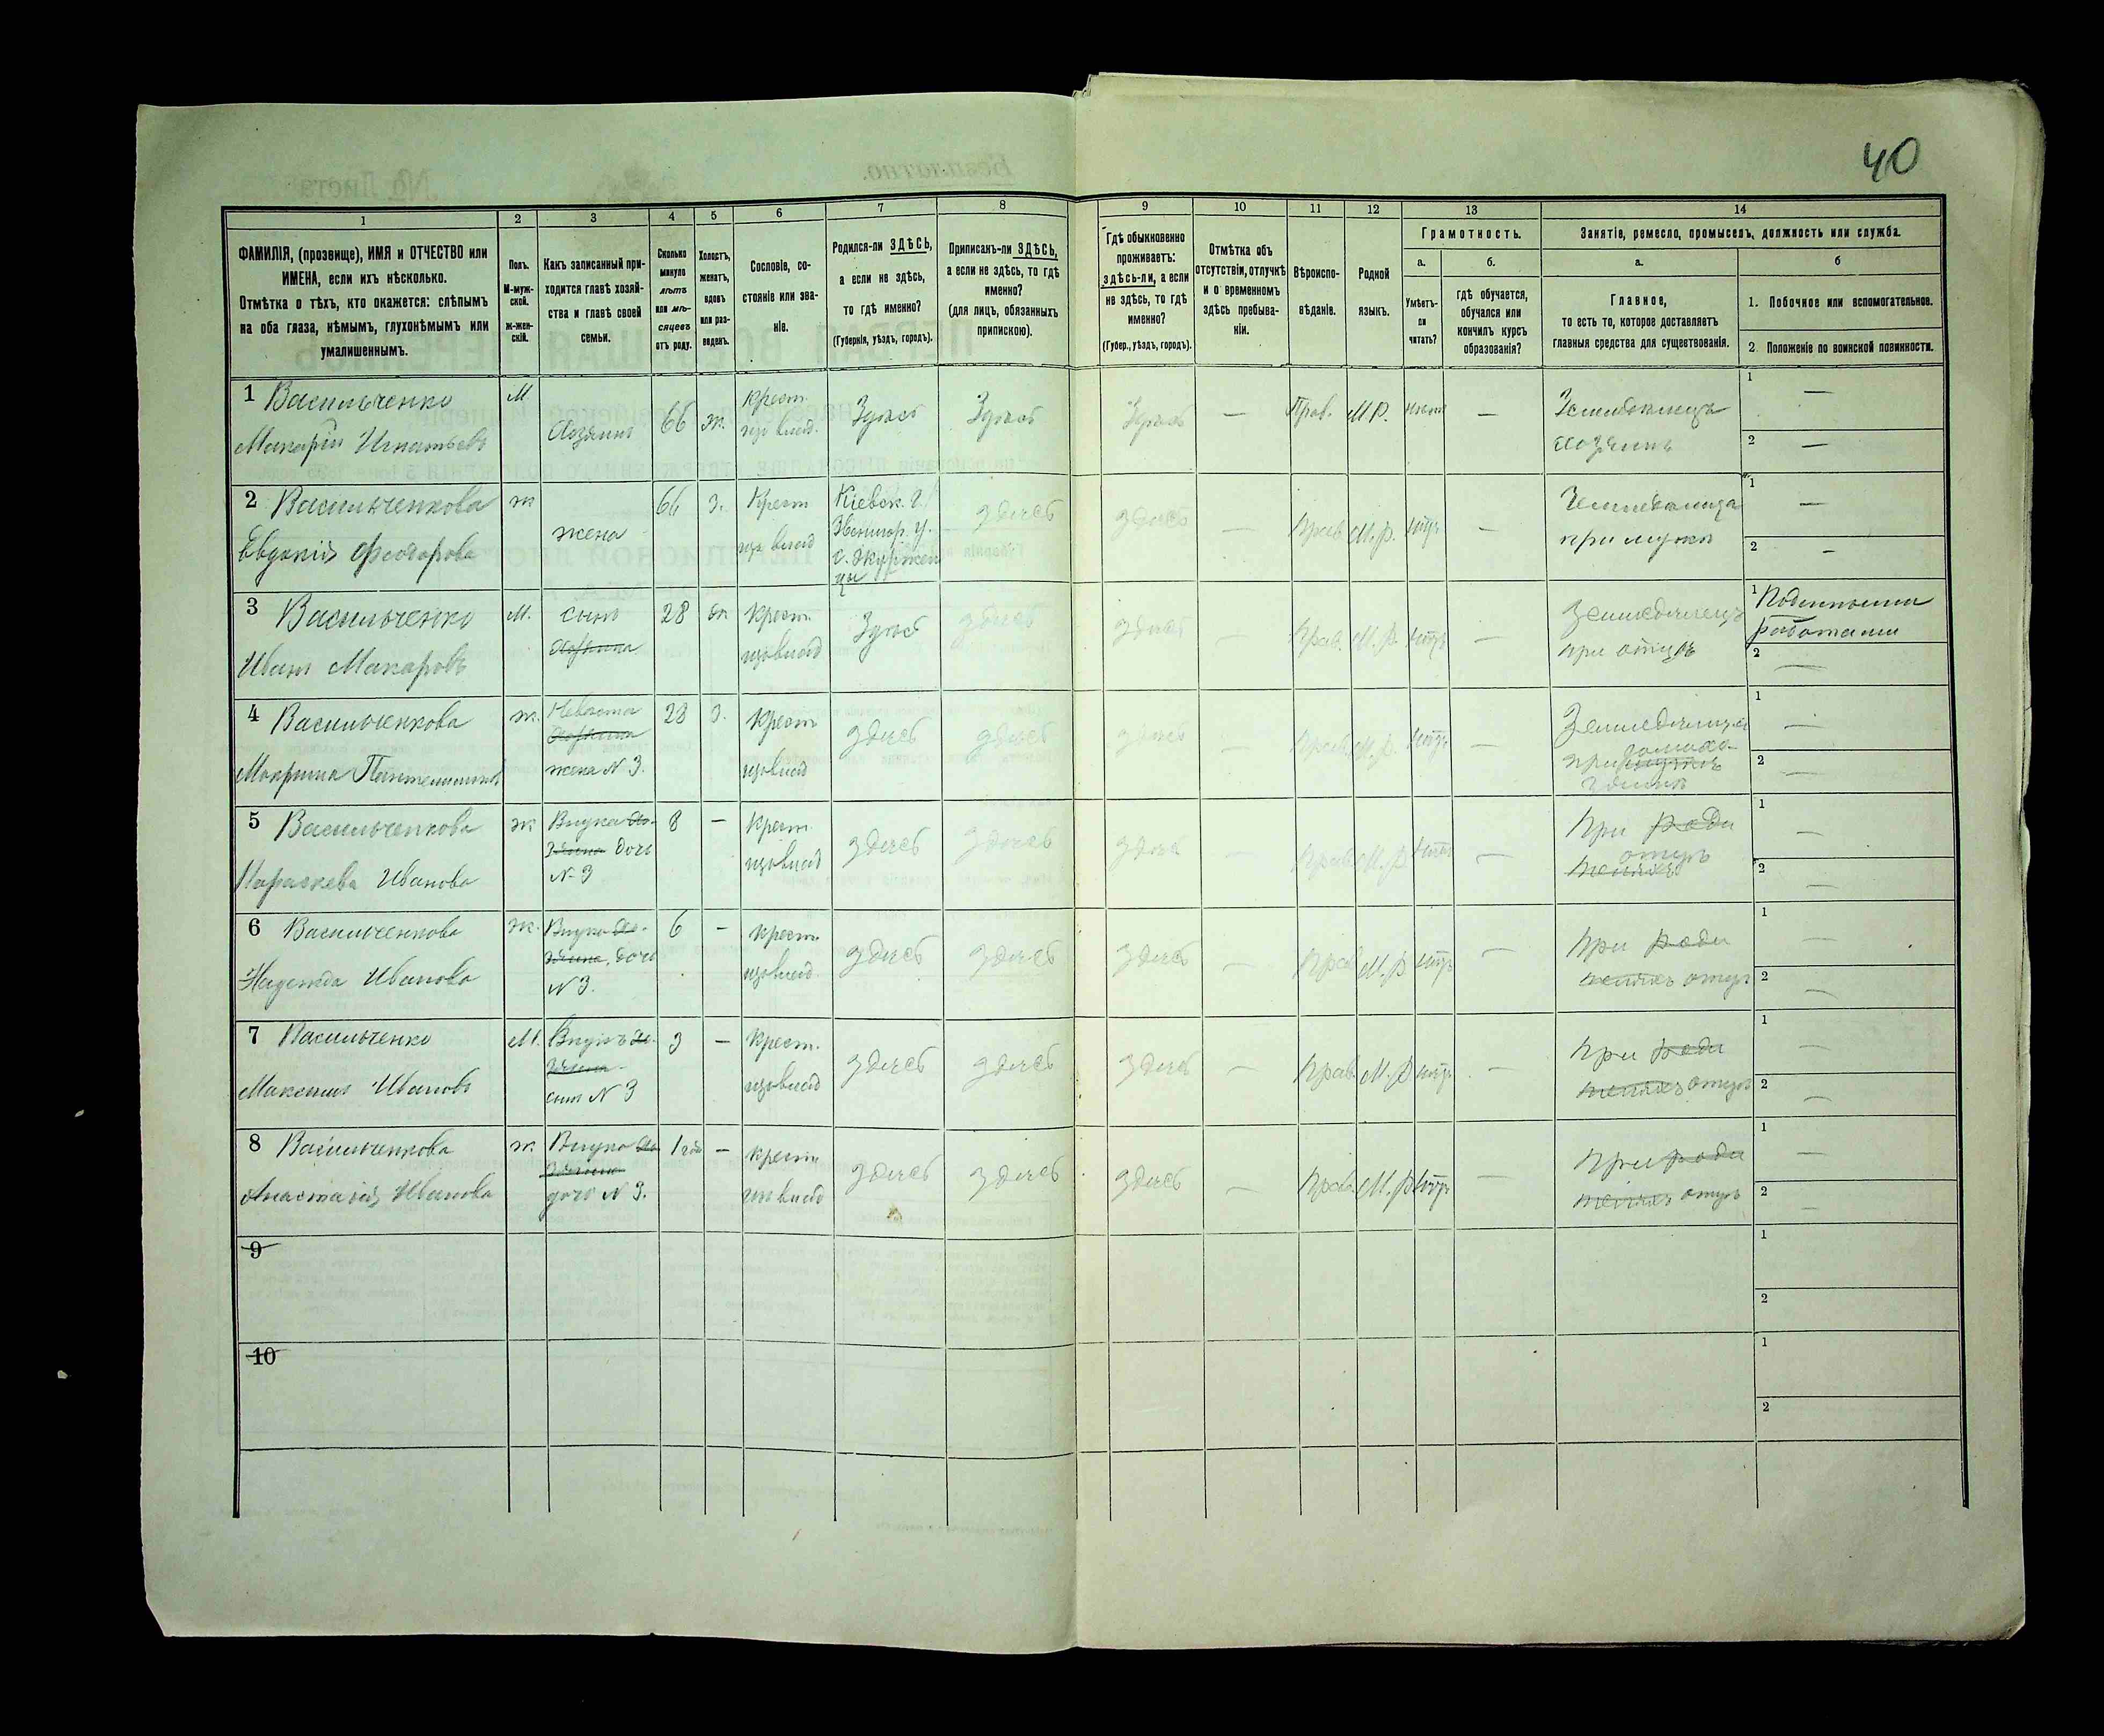 40
1
2
3
4
5
6
7
8
9
10
11
12
13
14
ФАМИЛІЯ, (прозвище), ИМЯ и ОТЧЕСТВО или
ИМЕНА, если ихъ нѣсколько.
Отмѣтка о тѣхъ, кто окажется: слѣпымъ
на оба глаза, нѣмымъ, глухонѣмымъ или
умалишеннымъ.
Полъ.
М-муж-
ской.
ж-жен-
скій.
Какъ записанный при-
ходится главѣ хозяй-
ства и главѣ своей
семьи.
Сколько
минуло
лѣтъ
или мѣ-
сяцевъ
отъ роду.
Холостъ,
женатъ,
вдовъ
или раз-
веденъ.
Сословіе, со-
стояніе или зва-
ніе.
Родился-ли ЗДѢСЬ,
а если не здѣсь,
то гдѣ именно?
(Губернія, уѣздъ, городъ).
Приписанъ-ли ЗДѢСЬ,
а если не здѣсь, то гдѣ
именно?
(для лицъ, обязанныхъ
припискою).
Гдѣ обыкновенно
проживаетъ:
здѣсь-ли, а если
не здѣсь, то гдѣ
именно?
(Губер., уѣздъ, городъ).
Отмѣтка объ
отсутствіи, отлучкѣ
и о временномъ
здѣсь пребыва-
ніи.
Вѣроиспо-
вѣданіе.
Родной
языкъ.
Грамотность.
а.
Умѣетъ-
ли
читать?
б.
гдѣ обучается,
обучался или
кончилъ курсъ
образованія?
Занятіе, ремесло, промыселъ, должность или служба.
а.
Главное,
то есть то, которое доставляетъ
главныя средства для существованія.
б
1. Побочное или вспомогательное.
2. Положеніе по воинской повинности.
1 Васильченко
Макарій Игнатьевъ
М
Хозяинъ
66
ж.
Крест.
изъ влад.
Здѣсь
Здѣсь
Здѣсь
—
Прав.
М.Р.
нѣтъ
—
Земледѣлецъ
хозяинъ
1 —
2 —
2 Васильченкова
Евдокія Федорова
ж
жена
66
з.
Крест
изъ влад
Кіевск. г.
Звенигор. у.
здѣсь
здѣсь
—
Прав.
М.р.
нѣтъ
—
при мужѣ
1 —
2 —
3 Васильченко
Иванъ Макаровъ
М.
сынъ
хозяина
28
жен
Крест.
изъ влад
Здѣсь
здѣсь
здѣсь
—
Прав.
М.р
нѣтъ
—
Земледѣлецъ
при отцѣ
1 Поденными
работами
2 —
4 Васильченкова
ж.
Невѣста
хозяина
жена N 3.
28
з.
Крест
изъ влад
здѣсь
здѣсь
здѣсь
—
Прав.
М.р.
нѣтъ
—
1 —
2 —
5 Васильченкова
Параскева Иванова
ж
Внука хо-
зяина дочь
N 3
8
—
Крест.
изъ влад
здѣсь
здѣсь
здѣсь
—
Прав.
М.р
нѣтъ
—
При роди
отцѣ
теляхъ
1 —
2 —
6 Васильченкова
Надежда Иванова
ж.
Внука хо-
зяина. дочь
N 3.
6
—
Крест.
изъ влад.
здѣсь
здѣсь
здѣсь
—
Прав
М.р
нѣтъ
—
При роди
теляхъ отцѣ
1 —
2 —
7 Васильченко
Максимъ Ивановъ
М.
Внукъ хо-
зяина.
сынъ N 3
3
—
Крест.
изъ влад
здѣсь
здѣсь
здѣсь
—
Прав.
М.р
нѣтъ
—
при роди
теляхъ отцѣ
1 —
2 —
8 Васильченкова
Анастасія Иванова
ж.
Внука хо
зяина
дочь N 3.
1 годъ
—
Крест
изъ влад
здѣсь
здѣсь
здѣсь
—
Прав.
М.р
нѣтъ
—
При роди
теляхъ отцѣ
1 —
2 —
9
1
2
10
1
2